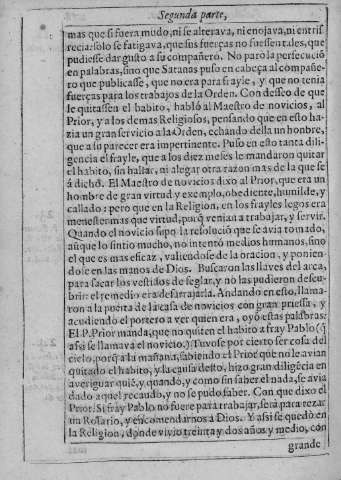 Segunda parte,
mas que si fuera mudo, ni se alterava, ni enojava, ni entris
recia: solo se fatigava, que sus fuerças no fuessen tales, que
pudiesse dar gusto a su compañero. No parò la persecuciõ
en palabras, sino que Satanas puso en cabeça al compañe-
ro que publicasse, que no era para frayle, y que no tenia
fuerças para los trabajos de la Orden. Con desseo de que
le quitassen el habito, hablò al Maestro de novicios, al
Prior, y a los demas Religiosos, pensando que en esto ha-
zia un gran servicio a la Orden, echando della un honbre,
que a su parecer era impertinente. Puso en esto tanta dili-
gencia el frayle, que a los diez meses le mandaron quitar
el habito, sin hallar, ni alegar otra razon mas de la que se
à dicho. El Maestro de novicios dixo al Prior, que era un
honbre de gran virtud y exemplo, obediente, humilde, y
callado: pero que en la Religion, en los frayles legos era
menester mas que virtud, porq̃ venian a trabajar, y servir.
Quando el novicio supo la resoluciõ que se avia tomado,
aũque lo sintio mucho, no intentó medios humanos, sino
el que es mas eficaz, valiendose de la oracion, y ponien-
dole en las manos de Dios. Buscaron las llaves del arca,
para sacar los vestidos de seglar, y no las pudieron descu-
brir: el remedio era desarrajarla. Andando en esto, llama-
ron a la puerta de la casa de novicios con gran priessa, y
acudiendo el portero a ver quien era, oyò estas palabras:
El P. Prior manda, que no quiten el habito a fray Pablo (q̃
assi se llamava el novicio.) Tuvose por cierto ser cosa del
cielo, porq̃ a la mañana, sabiendo el Prior que no le avian
quitado el habito, y la causa desto, hizo gran diligẽcia en
averiguar quiẽ, y quando, y como sin saber el nada, se avia
dado aquel recaudo, y no se pudo saber. Con que dixo el
Prior: Si fray Pablo no fuere para trabajar, serà para rezar
un Rosario, y encomendarnos a Dios. Y assi se quedò en
la Religion, donde vivio treinta y dos años y medio, con
grande